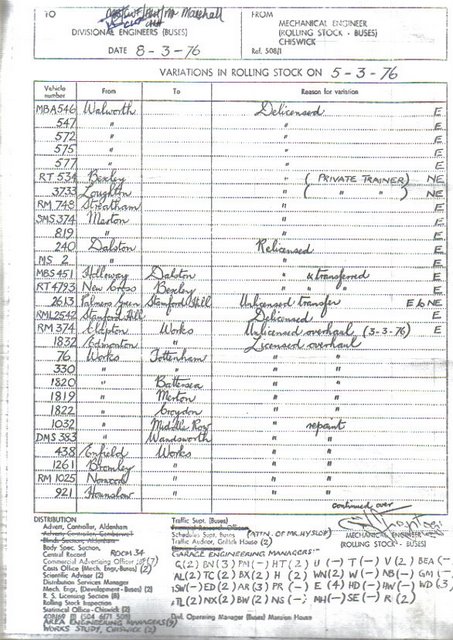 TO
Mr Marshall
DIVISIONAL ENGINEERS (BUSES)
DATE 8-3-76
FROM
MECHANICAL ENGINEER
(ROLLING STOCK - BUSES)
CHISWICK
Ref. 508/1
VARIATIONS IN ROLLING STOCK ON 5-3-76
Vehicle number From To Reason for variation
MBA546 Walworth Delicensed E
547 " " E
572 " " E
575 " " E
577 " " E
RT 534 Bexley " (PRIVATE TRAINER) NE
3733 Loughton " ( " " ) NE
RM 748 Streatham " E
SMS 374 Merton " E
819 " " E
240 Dalston Relicensed E
MS 2 " " E
MBS 451 Holloway Dalston " & transferred E
RT 4793 New Cross Bexley " " " E
2613 Palmers Green Stamford Hill Unlicensed transfer E to NE
RML2542 Stamford Hill Delicensed E
RM 374 Clapton Works Unlicensed overhaul (3-3-76) E
1832 Edmonton " Licensed overhaul
76 Works Tottenham " "
330 " " " "
1820 " Battersea " "
1819 " Merton " "
1822 " Croydon " "
1032 " Middle Row " repaint
DMS 383 " Wandsworth " "
438 Enfield Works " "
1261 Bromley " " "
RM 1025 Norwood " " "
921 Hounslow " " "
continued over
MECHANICAL ENGINEER
(ROLLING STOCK - BUSES)
DISTRIBUTION
Advert. Controller, Aldenham
Body Spec. Section
Central Record ROOM 34
Commercial Advertising Officer
Costs Office (Mech. Eng., Buses) (2)
Scientific Adviser (2)
Distribution Services Manager
Mech. Engr. (Development - Buses) (2)
R. S. Licensing Section (8)
Rolling Stock Inspection
Statistical Office - Chiswick (2)
AREA ENGINEERING MANAGERS
WORKS STUDY, CHISWICK (2)
Traffic Supt. (Buses)
Schedules Supt. Buses (ATTN. OF MR. HYSLOP)
Traffic Auditor, Griffith House (2)
GARAGE ENGINEERING MANAGERS:-
Divl. Operating Manager (Buses) Mansion House